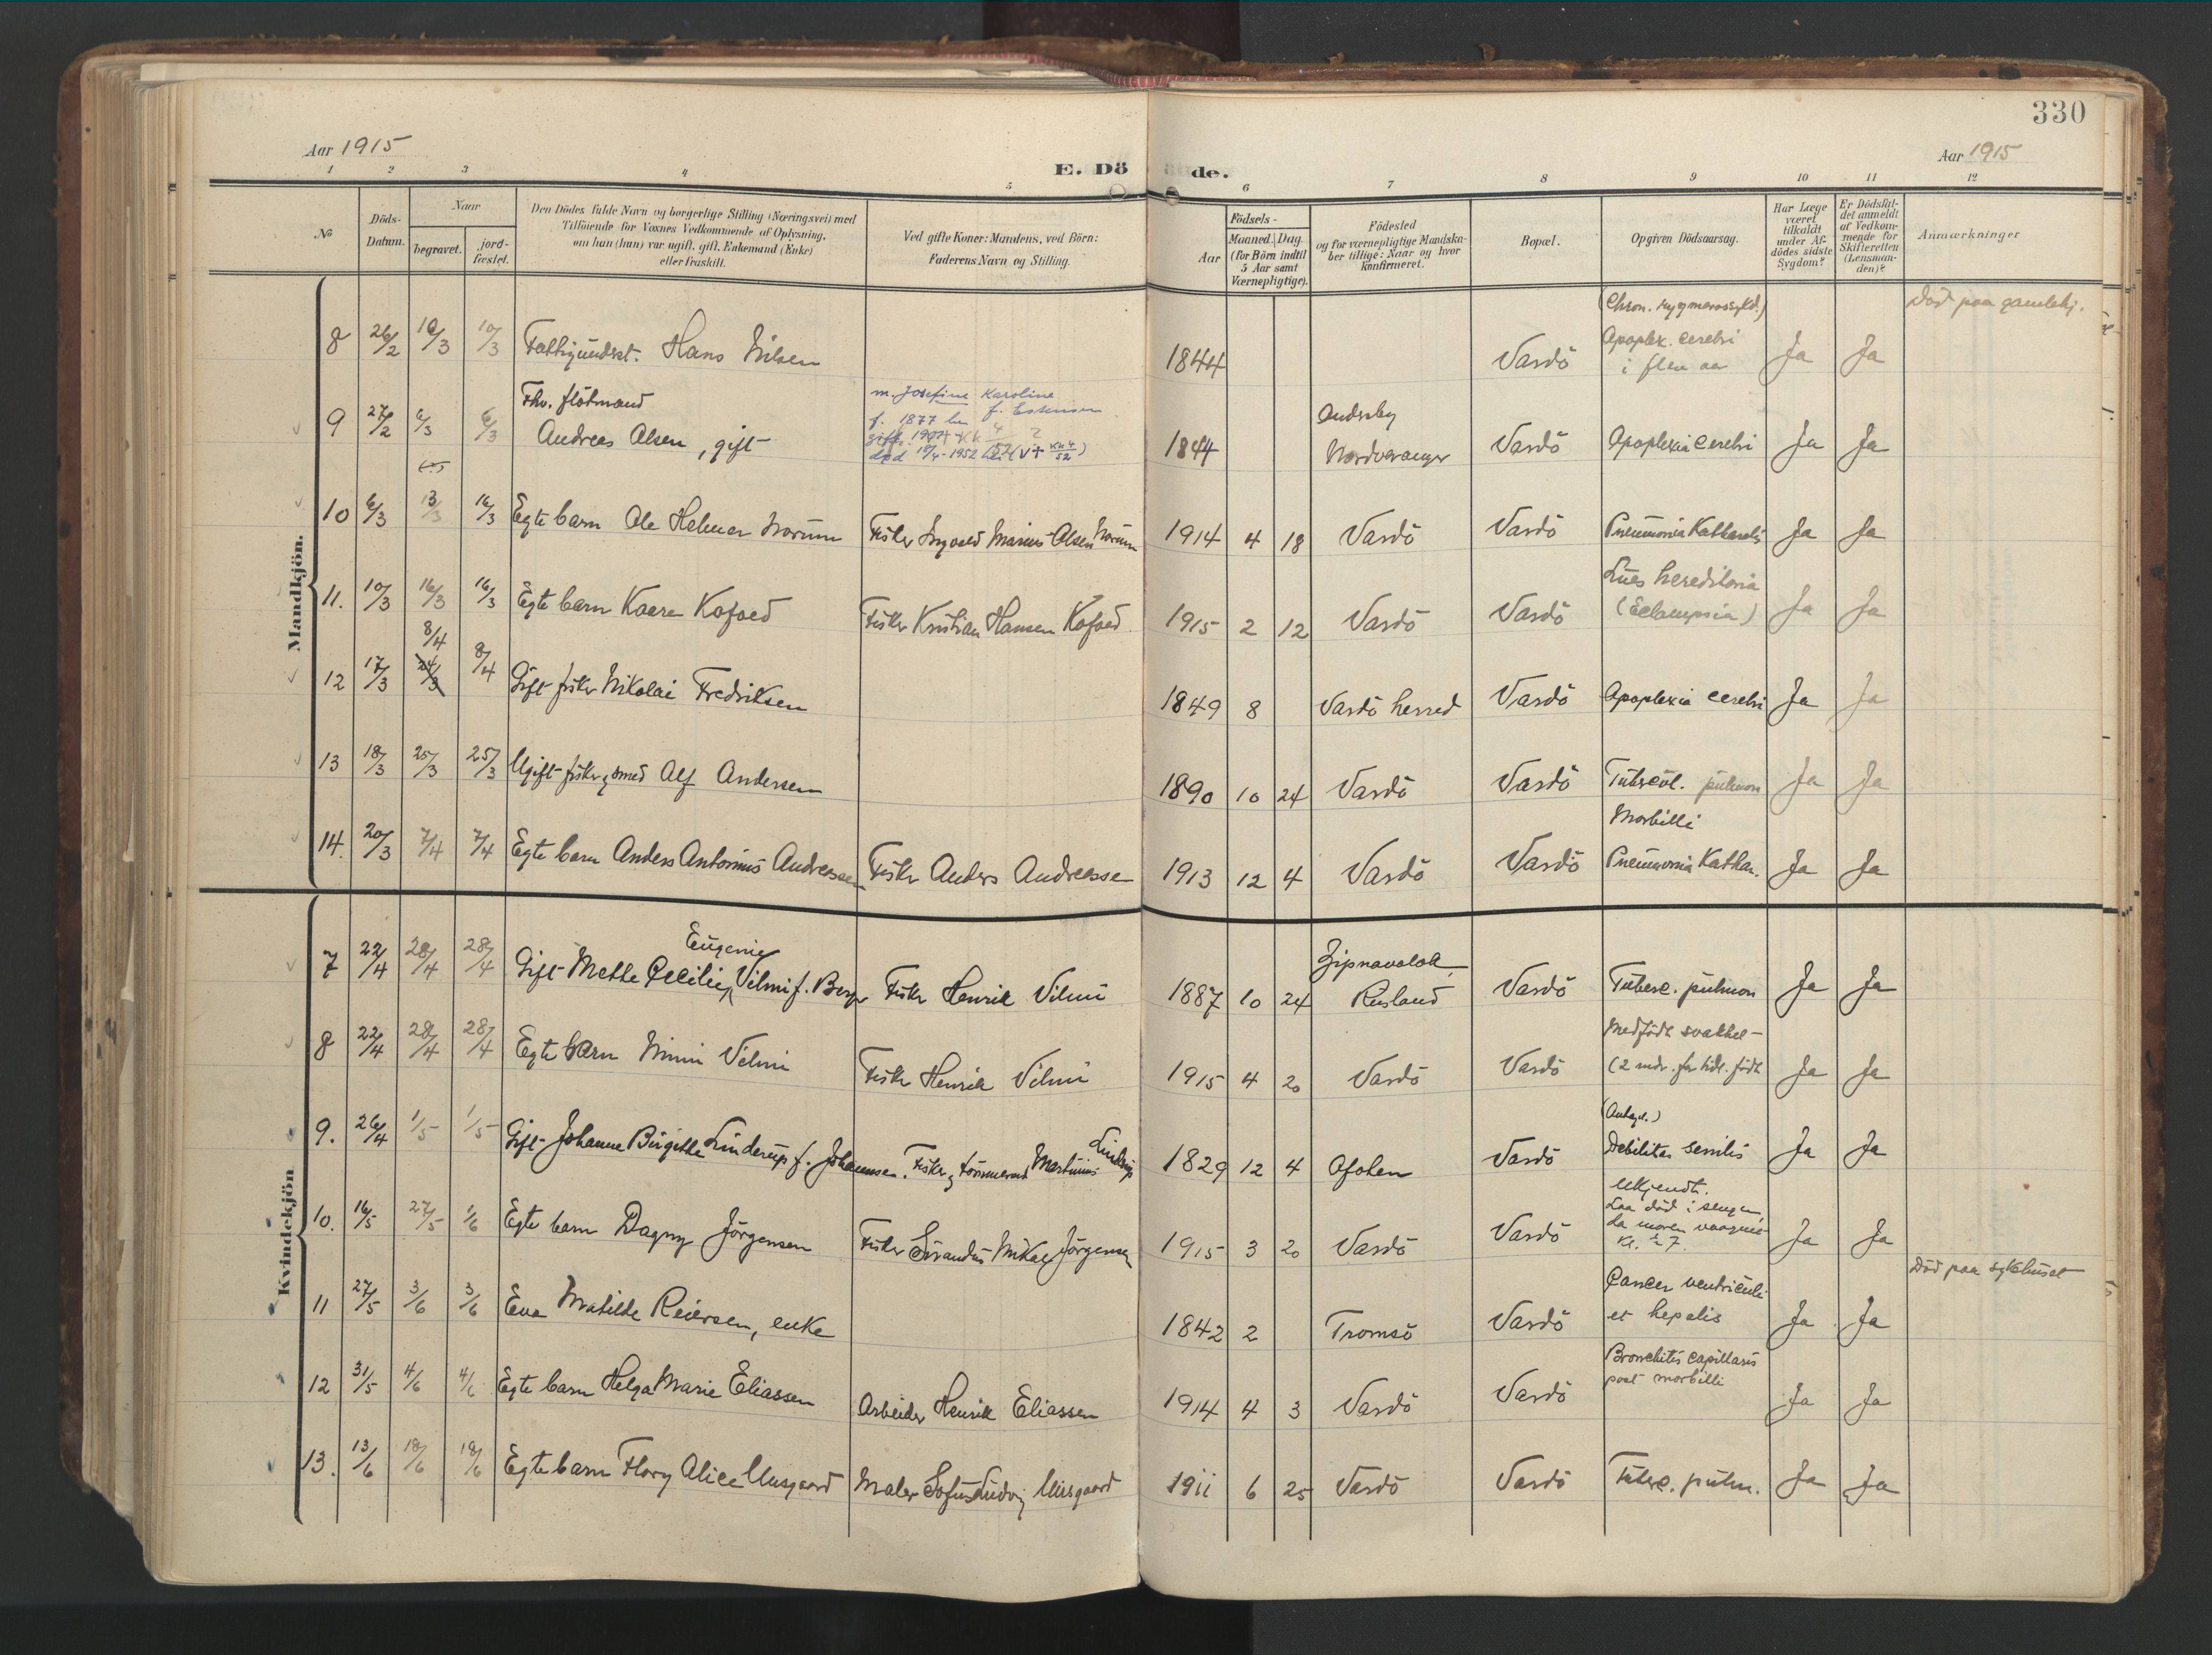 330
Aar 1915
E. Dö de.
Aar 1915
1 2 3 4 5 6 7 8 9 10 11 12
No
Döds-Datum.
Naar
begravet.
jord-fæstet.
Den Dödes fulde Navn og borgerlige Stilling (Næringsvei) med
Tilföiende for Voxnes Vedkommende af Oplysning,
om han (hun) var ugift, gift, Enkemand (Enke)
eller fraskilt.
Ved gifte Koner: Mandens, ved Börn:
Faderens Navn og Stilling.
Födsels-
Aar
Maaned. Dag.
(for Börn indtil
5 Aar samt
Værnepligtige).
Födested
og for værnepligtige Mandska-
ber tillige: Naar og hvor
konfirmeret.
Bopæl.
Opgiven Dödsaarsag.
Har Læge
været
tilkaldt
under Af-
dödes sidste
Sygdom?
Er Dödsfal-
det anmeldt
af Vedkom-
mende for
Skifteretten
(Lensman-
den)?
Anmærkninger
Mandkjön.
8 26/2 10/3 10/3 Fattigunderst. Hans Nilsen 1844 Vardö (Chron. rygmarvssykd.) Apoplex. cerebri i flere aar Ja Ja Död paa gamlehj.
9 27/2 6/3 6/3 Fhv. flötmand Andreas Olsen, gift
m. Josefine Karoline
f. 1877
1844 Nordvaranger Vardö Apoplexia cerebri Ja Ja
10 6/3 13/3 16/3 Egte barn Ole Helmer Norum Fisker Ingvald Marius Olsen Norum 1914 4 18 Vardö Vardö Pneumonia Katharalis Ja Ja
11. 10/3 16/3 16/3 Egte barn Kaare Kofoed Fisker Kristian Hansen Kofoed 1915 2 12 Vardö Vardö Lues hereditaria (Eclampsia) Ja Ja
12 17/3 24/3 8/4 8/4 Gift fisker Nikolai Fredriksen 1849 8 Vardö herred Vardö Apoplexia cerebri Ja Ja
13 18/3 25/3 25/3 Ugift fisker og smed Alf Andersen 1890 10 24 Vardö Vardö Tubercul. pulmon Ja Ja
14. 20/3 7/4 7/4 Egte barn Anders Antonius Andreassen Fisker Anders Andreassen 1913 12 4 Vardö Vardö Morbilli Pneumonia Kathar. Ja Ja
Kvindekjön
7 22/4 28/4 28/4 Gift Methe Cecilie Eugenie Vilmi f. Berg Fisker Henrik Vilmi 1887 10 24 Zipnavolok Rusland Vardö Tuberc. pulmon Ja Ja
8 22/4 28/4 28/4 Egte barn Mimi Vilmi Fisker Henrik Vilmi 1915 4 20 Vardö Vardö Medfödt svakhet (2 mdr. for tidl. födt Ja Ja
9. 26/4 1/5 1/5 Gift Johanne Birgitte Linderup f. Johannsen. Fisker og tömmermd Martinus Lindrup 1829 12 4 Ofoten Vardö (Antagel.) Debilitas senilis Ja Ja
10. 16/5 27/5 1/6 Egte barn Dagny Jörgensen Fisker Mikal Jörgensen 1915 3 20 Vardö Vardö Ukjendt. Laa död i sengen, da moren vaagnet Kl. 1/2 7. Ja Ja
11 27/5 3/6 3/6 Eva Matilde Reiersen, enke 1842 2 Tromsö Vardö Cancer ventriculi et hepatis Ja Ja Död paa sykehuset
12 31/5 4/6 4/6 Egte barn Helga Marie Eliassen Arbeider Henrik Eliassen 1914 4 3 Vardö Vardö Bronchitis capillaris post morbilli Ja Ja
13. 13/6 18/6 18/6 Egte barn Flory Alice Uusgaard Maler Sofus Ludvig Uusgaard 1911 6 25 Vardö Vardö Tuberc. pulm. Ja Ja